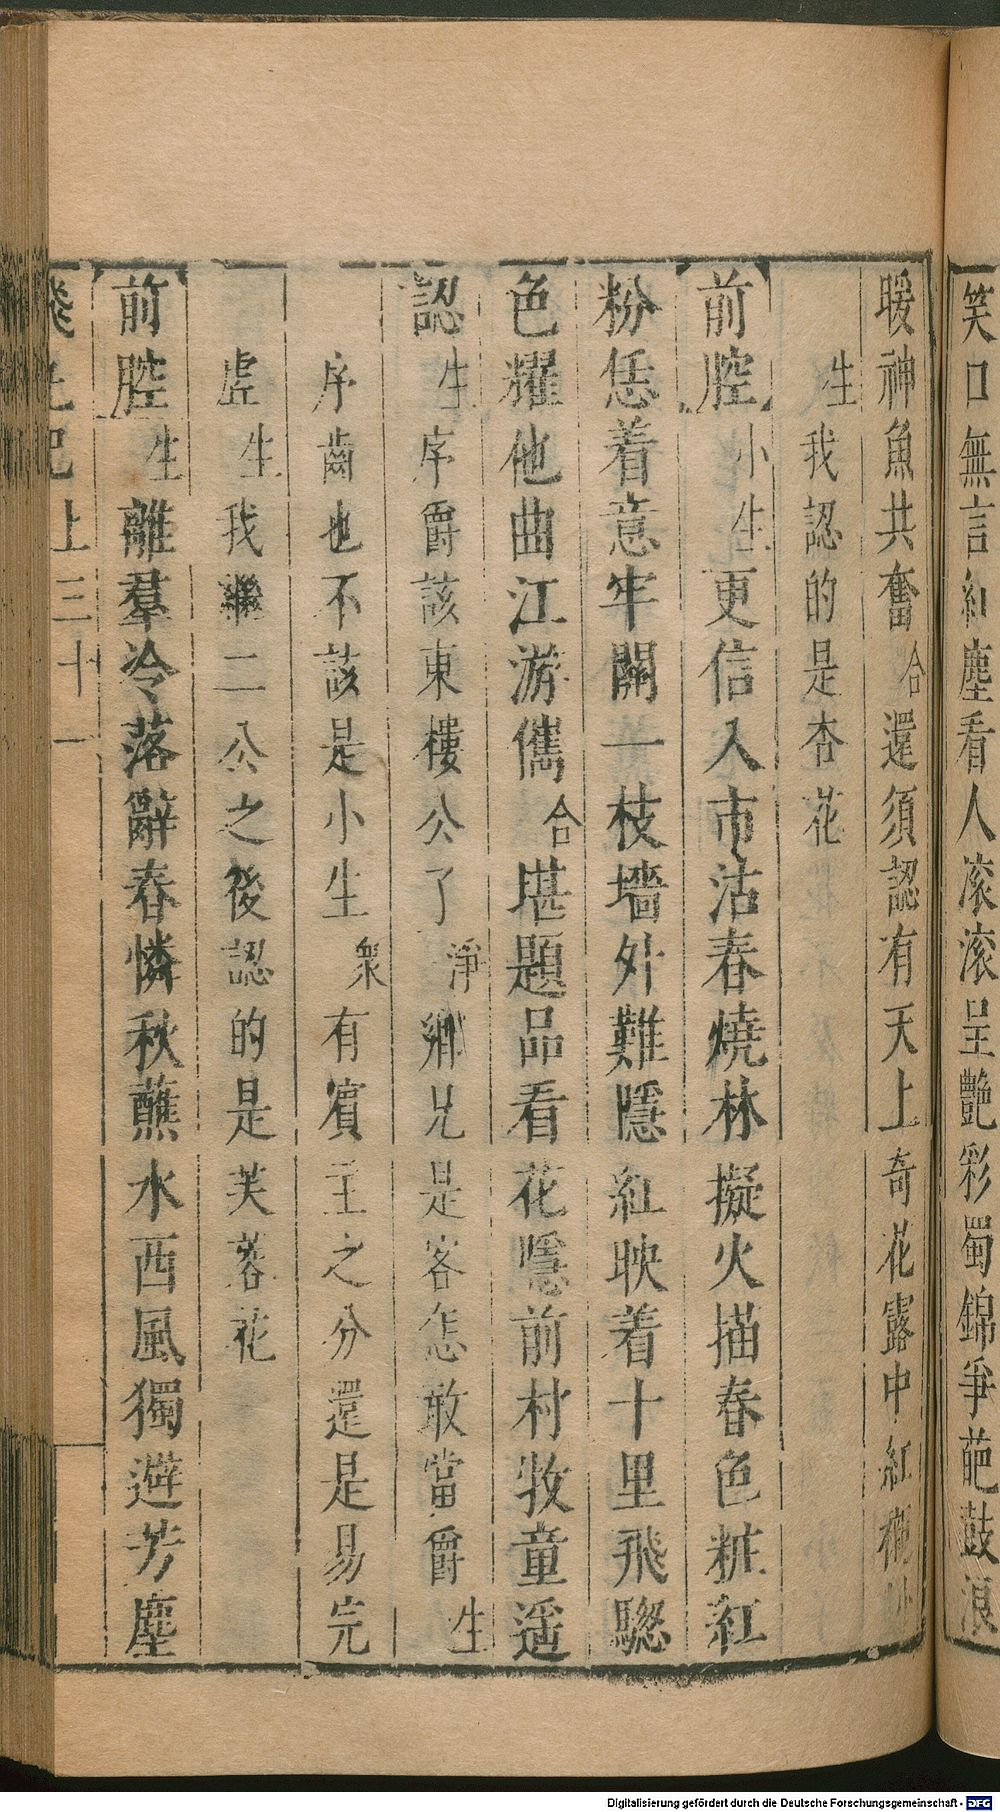 笑口無言紅塵看人滚滚呈艷彩蜀錦爭葩鼓浪
暖神魚共奮合還須認有天上奇花露中紅杏
生我認的是杏花
前腔小生更信入市沽春燒林擬火描春色粧紅
粉恁着意牢關一枝墻外難隱紅映着十里飛驄
色耀他曲江游儁合堪題品看花隱前村牧童遥
認生序爵該東樓公了淨鄉兄是客怎敢當爵生
序齒也不該是小生衆有賓主之分還是易完
虛生我繼二公之後認的是芙蓉花
前腔生離羣冷落辭春憐秋蘸水西風獨避芳塵
上三十一
Digitalisierung gefördert durch die Deutsche Forschungsgemeinschaft - DFG